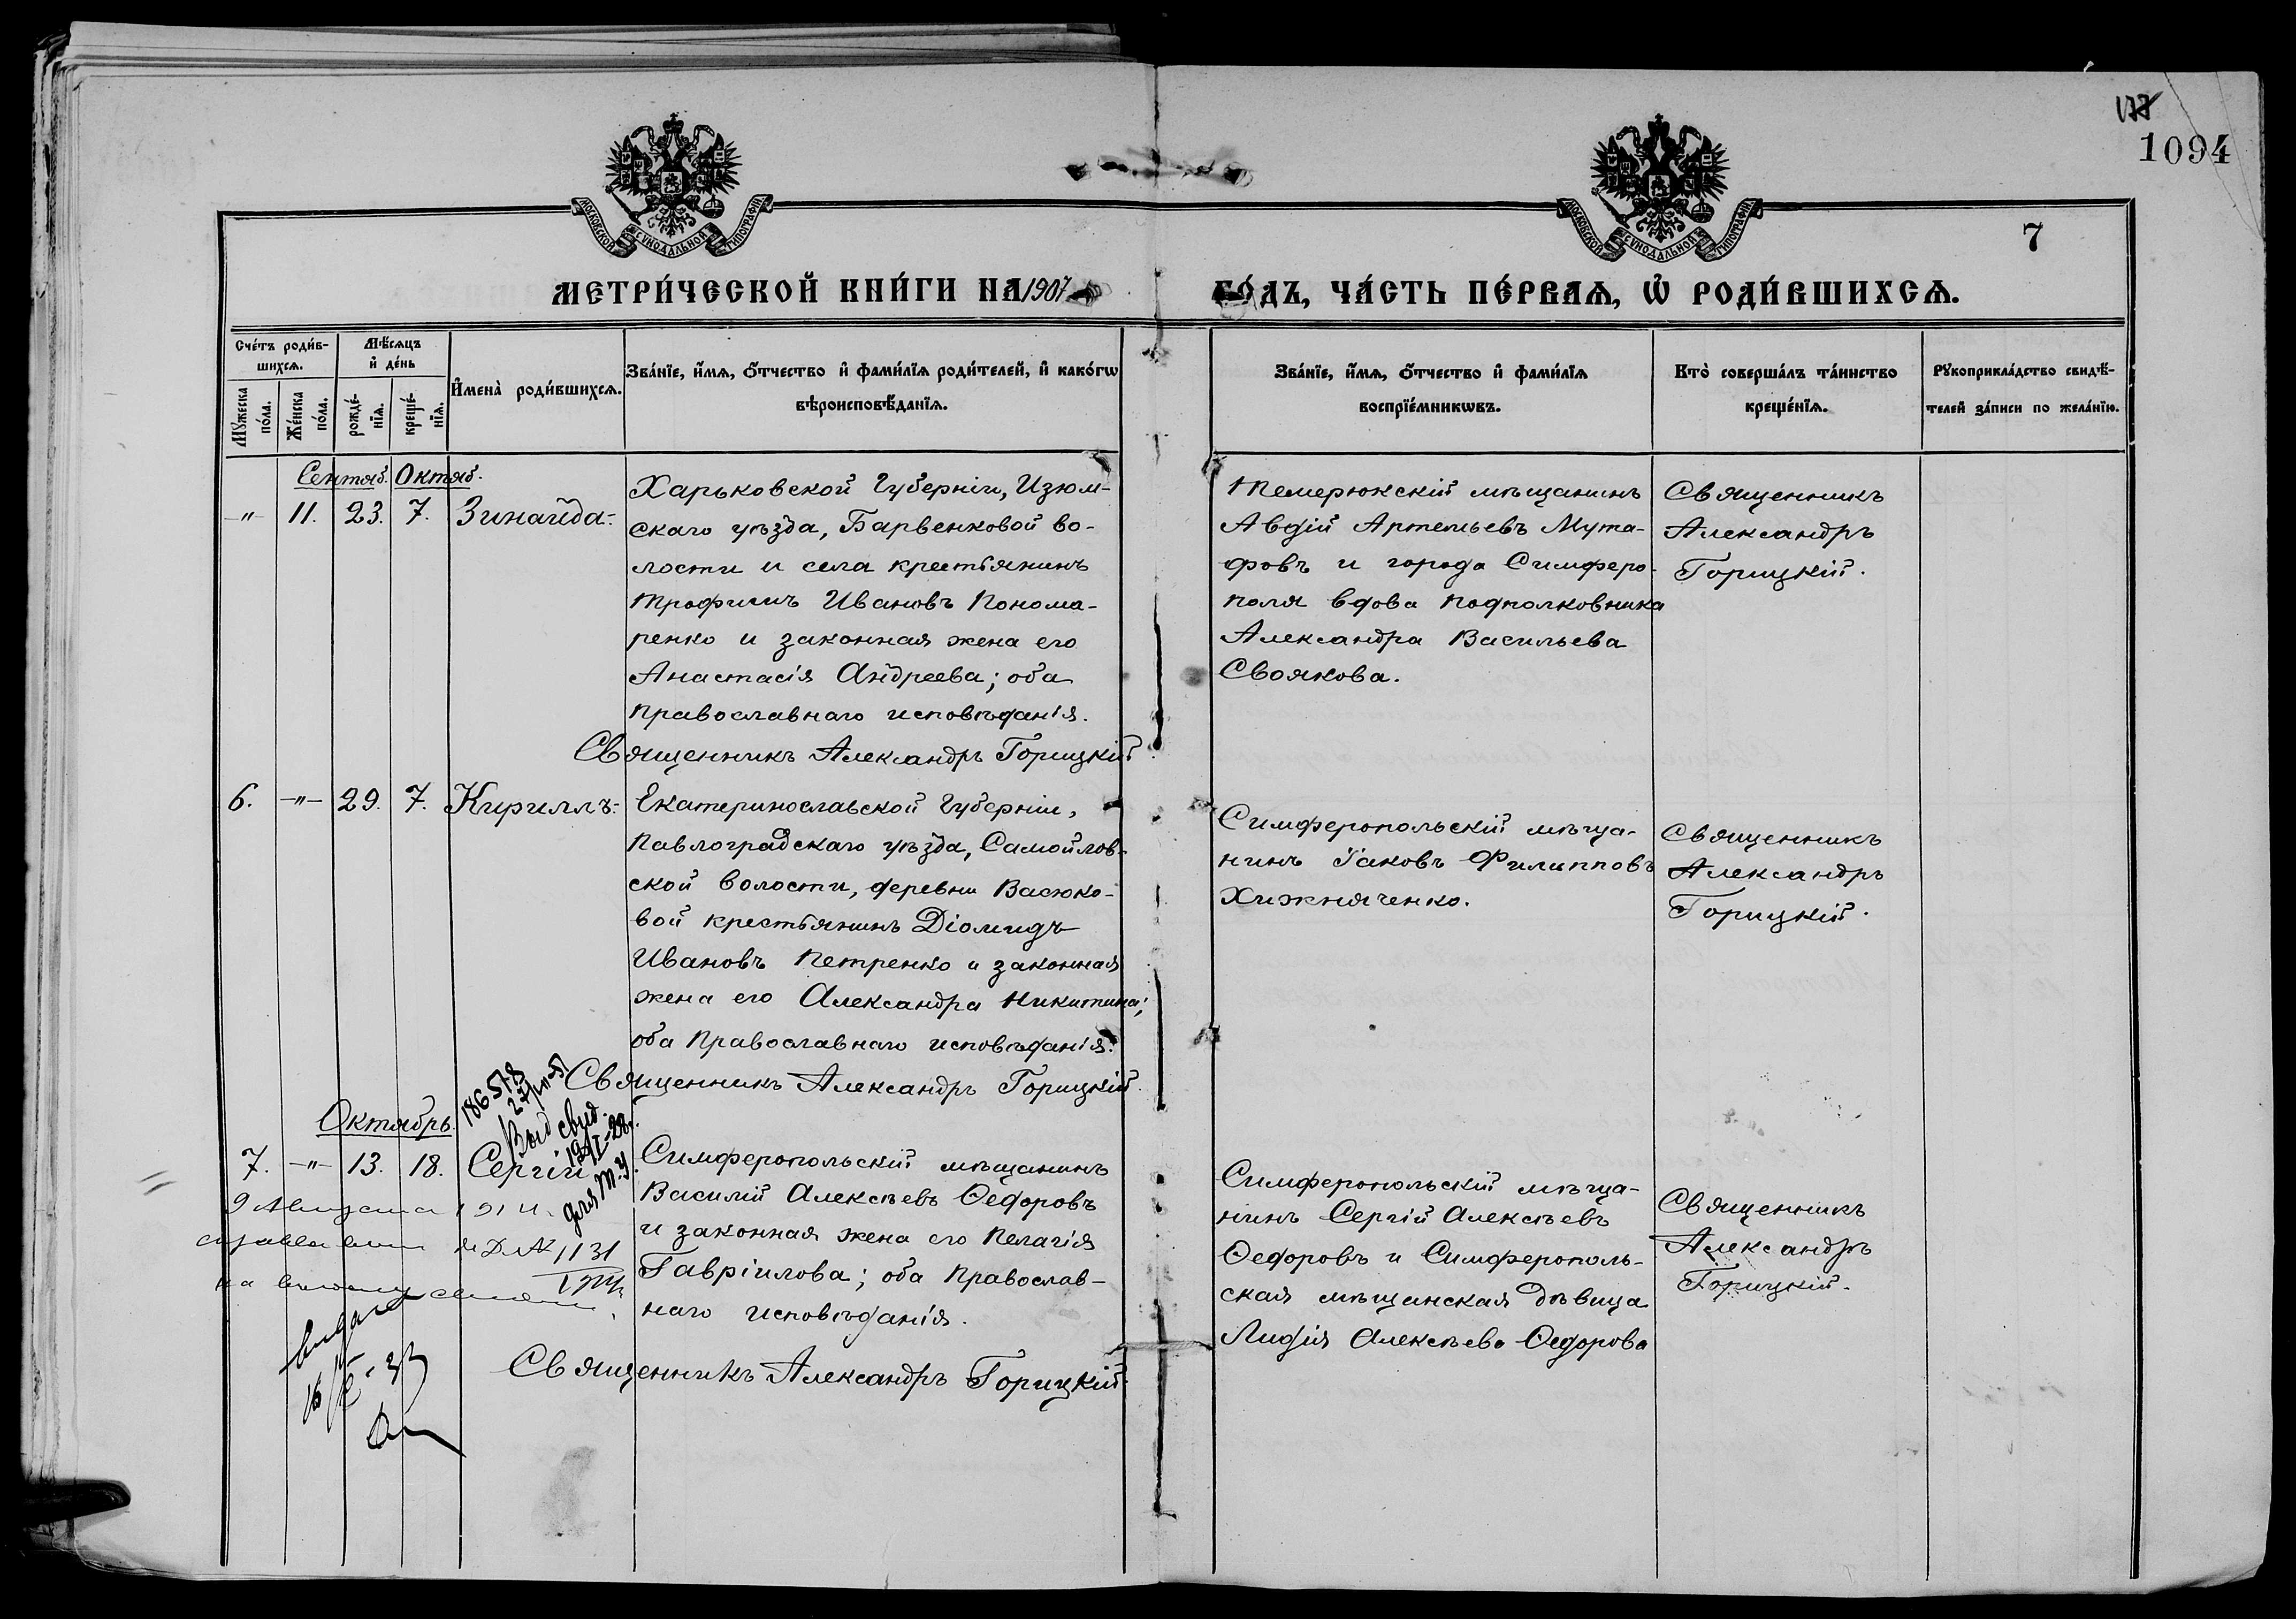 1094
7
МОСКОВСКОЙ СУНОДАЛЬНОЙ ТИПОГРАФІИ
МОСКОВСКОЙ СУНОДАЛЬНОЙ ТИПОГРАФІИ
МЕТРИ́ЧЕСКОЙ КНИ́ГИ НА 1907 ГО́ДЪ, ЧА́СТЬ ПЕ́РВАѦ, Ѡ҆ РОДИ́ВШИХСѦ.
Сче́тъ роди́в-
шихсѧ.
Мꙋ́жеска
по́ла.
Же́нска
по́ла.
Мѣ́сѧцъ
и҆ де́нь
рожде́-
нїѧ.
креще́-
нїѧ.
И҆мена̀ роди́вшихсѧ.
Зва́нїе, и҆́мѧ, ѻ҆́тчество и҆ фами́лїѧ роди́телей, и҆ како́гѡ
вѣроисповѣ́данїѧ.
Зва́нїе, и҆́мѧ, ѻ҆́тчество и҆ фами́лїѧ
воспрїе́мникѡвъ.
Кто̀ соверша́лъ та́инство
креще́нїѧ.
Рꙋкоприкла́дство свидѣ́-
телей за́писи по жела́нїю.
Сентяб. Октяб.
-"- 11. 23. 7. Зинаида.
Харьковской губерніи, Изюм-
скаго уѣзда, Барвенковой во-
лости и села крестьянинъ
Трофимъ Ивановъ Понома-
ренко и законная жена его
Анастасія Андреева; оба
Православнаго исповѣданія.
Священникъ Александръ Горицкій
Темерюкскій мѣщанинъ
Авдій Артемьевъ Мута-
фовъ и города Симферо-
поля вдова подполковника
Александра Васильева
Своякова.
Священникъ
Александръ
Горицкій.
6. -"- 29. 7. Кириллъ.
Екатеринославской губерніи,
Павлоградскаго уѣзда, Самойлов-
ской волости, деревни Васюко-
вой крестьянинъ Діомидъ
Ивановъ Петренко и законная
жена его Александра Никитина;
оба Православнаго исповѣданія.
Священникъ Александръ Горицкій.
Симферопольскій мѣща-
нинъ Іаковъ Филипповъ
Хижняченко.
Священникъ
Александръ
Горицкій.
Октябрь.
186578
Выд свид.
для М.У.
7. -"- 13. 18. Сергій
Симферопольскій мѣщанинъ
Василій Алексѣевъ Ѳедоровъ
и законная жена его Пелагія
Гавріилова; оба Православ-
наго исповѣданія.
Священникъ Александръ Горицкій.
9 Августа
1131
Симферопольскій мѣща-
нинъ Сергій Алексѣевъ
Ѳедоровъ и Симферополь-
ская мѣщанская дѣвица
Лидія Алексѣева Ѳедорова
Священникъ
Александръ
Горицкій.